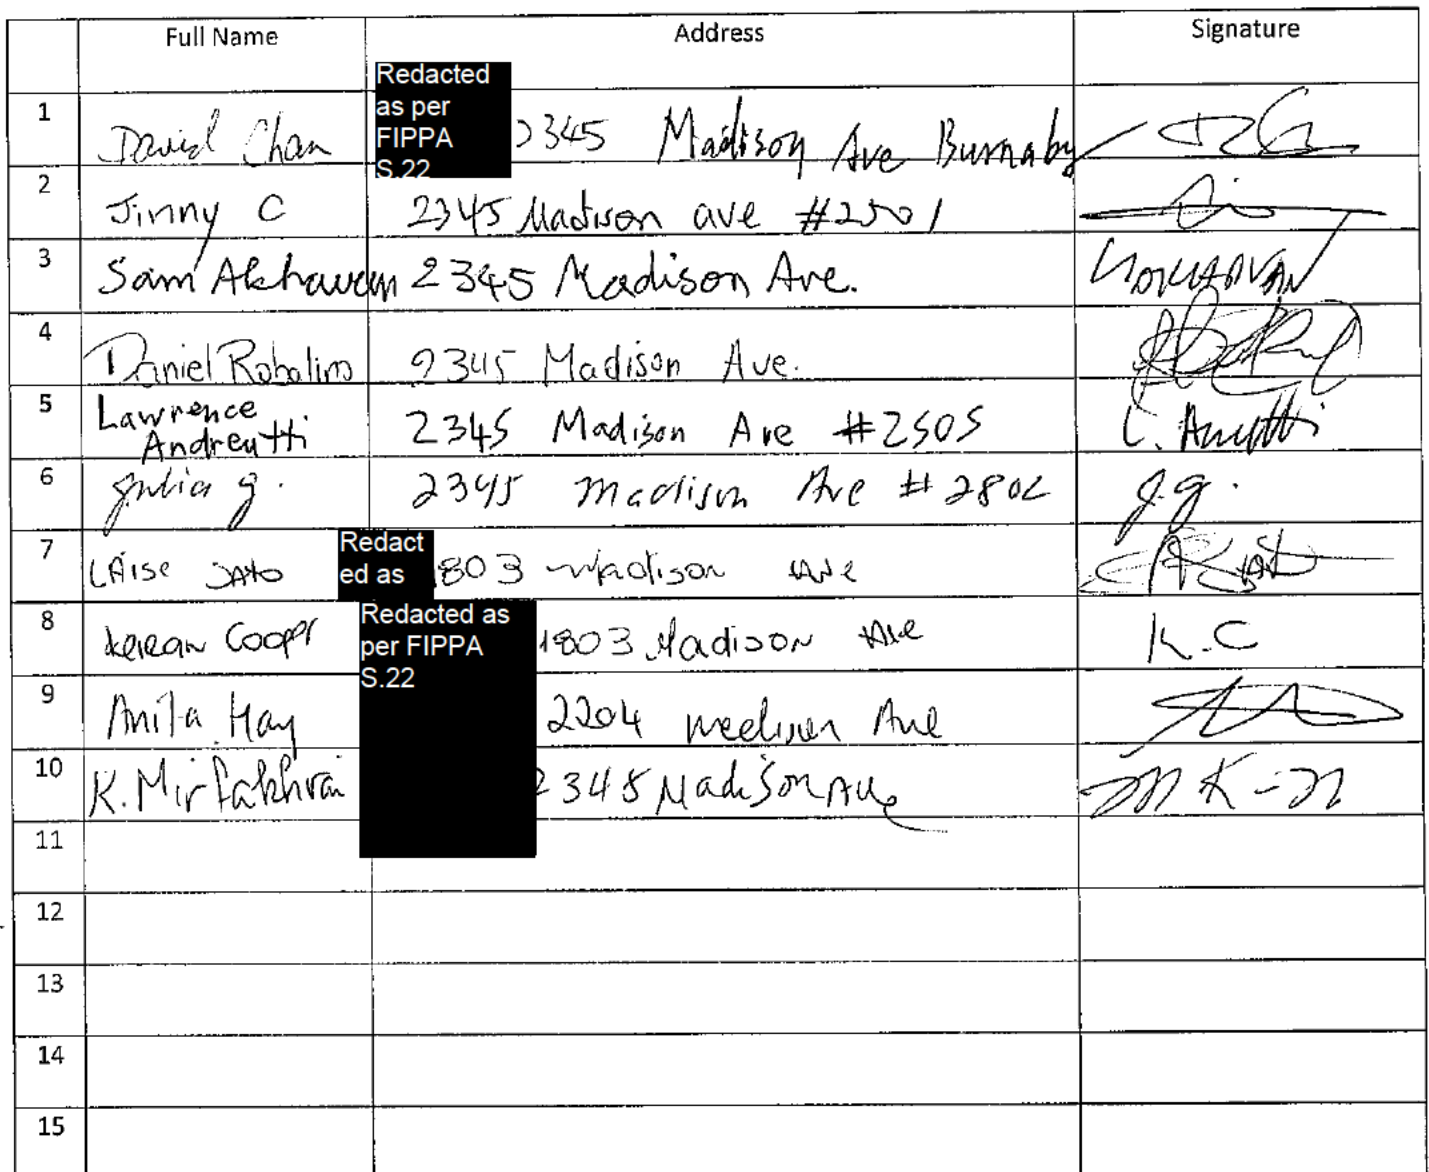 Full Name Address Signature
1 David Chan Redacted as per FIPPA S.22 2345 Madison Ave Burnaby
2 Jinny C 2345 Madison ave #2501
3 Sam Akhavan 2345 Madison Ave.
4 Daniel Robalino 2345 Madison Ave.
5 Lawrence Andreutti 2345 Madison Ave #2505 L.
6 Julia g. 2345 Madison Ave #2802 J.g.
7 LAise SATO Redact ed as 1803 Madison Ave
8 Cooper Redacted as per FIPPA S.22 1803 Madison Ave K.C
9 Anita Hay 2204 Madison Ave
10 K. Mirfakhrai 2345 Madison Ave
11
12
13
14
15